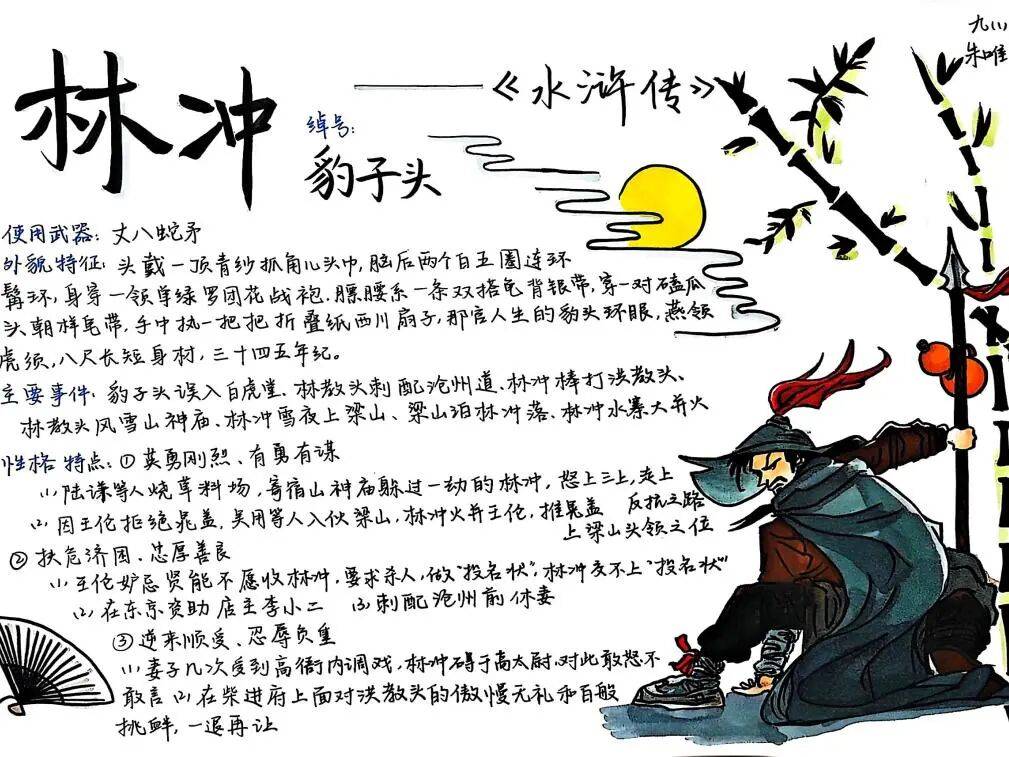 林冲 ——《水浒传》
九(1)
朱唯
绰号:
豹子头
使用武器:丈八蛇矛
外貌特征:头戴一顶青纱抓角儿头巾,脑后两个白玉圈连环
鬓环,身穿一领单绿罗团花战袍.腰系一条双搭龟背银带,穿一对磕瓜
头朝样皂带,手中执一把把折叠纸西川扇子,那官人生的豹头环眼,燕领
虎须,八尺长短身材,三十四五年纪。
主要事件:豹子头误入白虎堂、林教头刺配沧州道、林冲棒打洪教头、
林教头风雪山神庙、林冲雪夜上梁山、梁山泊林冲落、林冲水寨大并火
性格特点:①英勇刚烈、有勇有谋
(1)陆谦等人烧草料场,寄宿山神庙躲过一劫的林冲,怒上三上,走上
反抗之路
(2)因王伦拒绝晁盖,吴用等人入伙梁山,林冲火并王伦,推晁盖
上梁山头领之位
②扶危济困、忠厚善良
(1)王伦妒忌贤能不愿收林冲,要求杀人,做"投名状",林冲交不上"投名状"
(2)在东京资助店主李小二 (3)刺配沧州前休妻
③逆来顺受、忍辱负重
(1)妻子几次受到高衙内调戏,林冲碍于高太尉,对此敢怒不
敢言(2)在柴进府上面对洪教头的傲慢无礼和百般
挑衅,一退再让